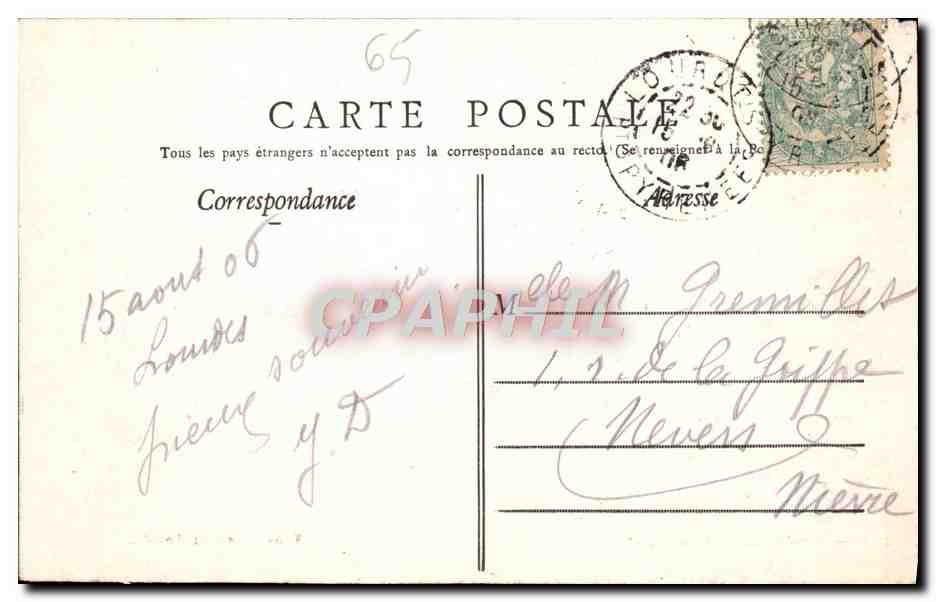 65
CARTE POSTALE
Tous les pays étrangers n'acceptent pas la correspondance au recto. (Se renseigner à la Po
LOURDES
22 30
15 8
06
Correspondance
Adresse
15 aout 06
Lourdes
pieux souvenir
y D
Melle M. Gremillet
1, r. de la Griffe
Nevers
Nièvre
CPAPHIL